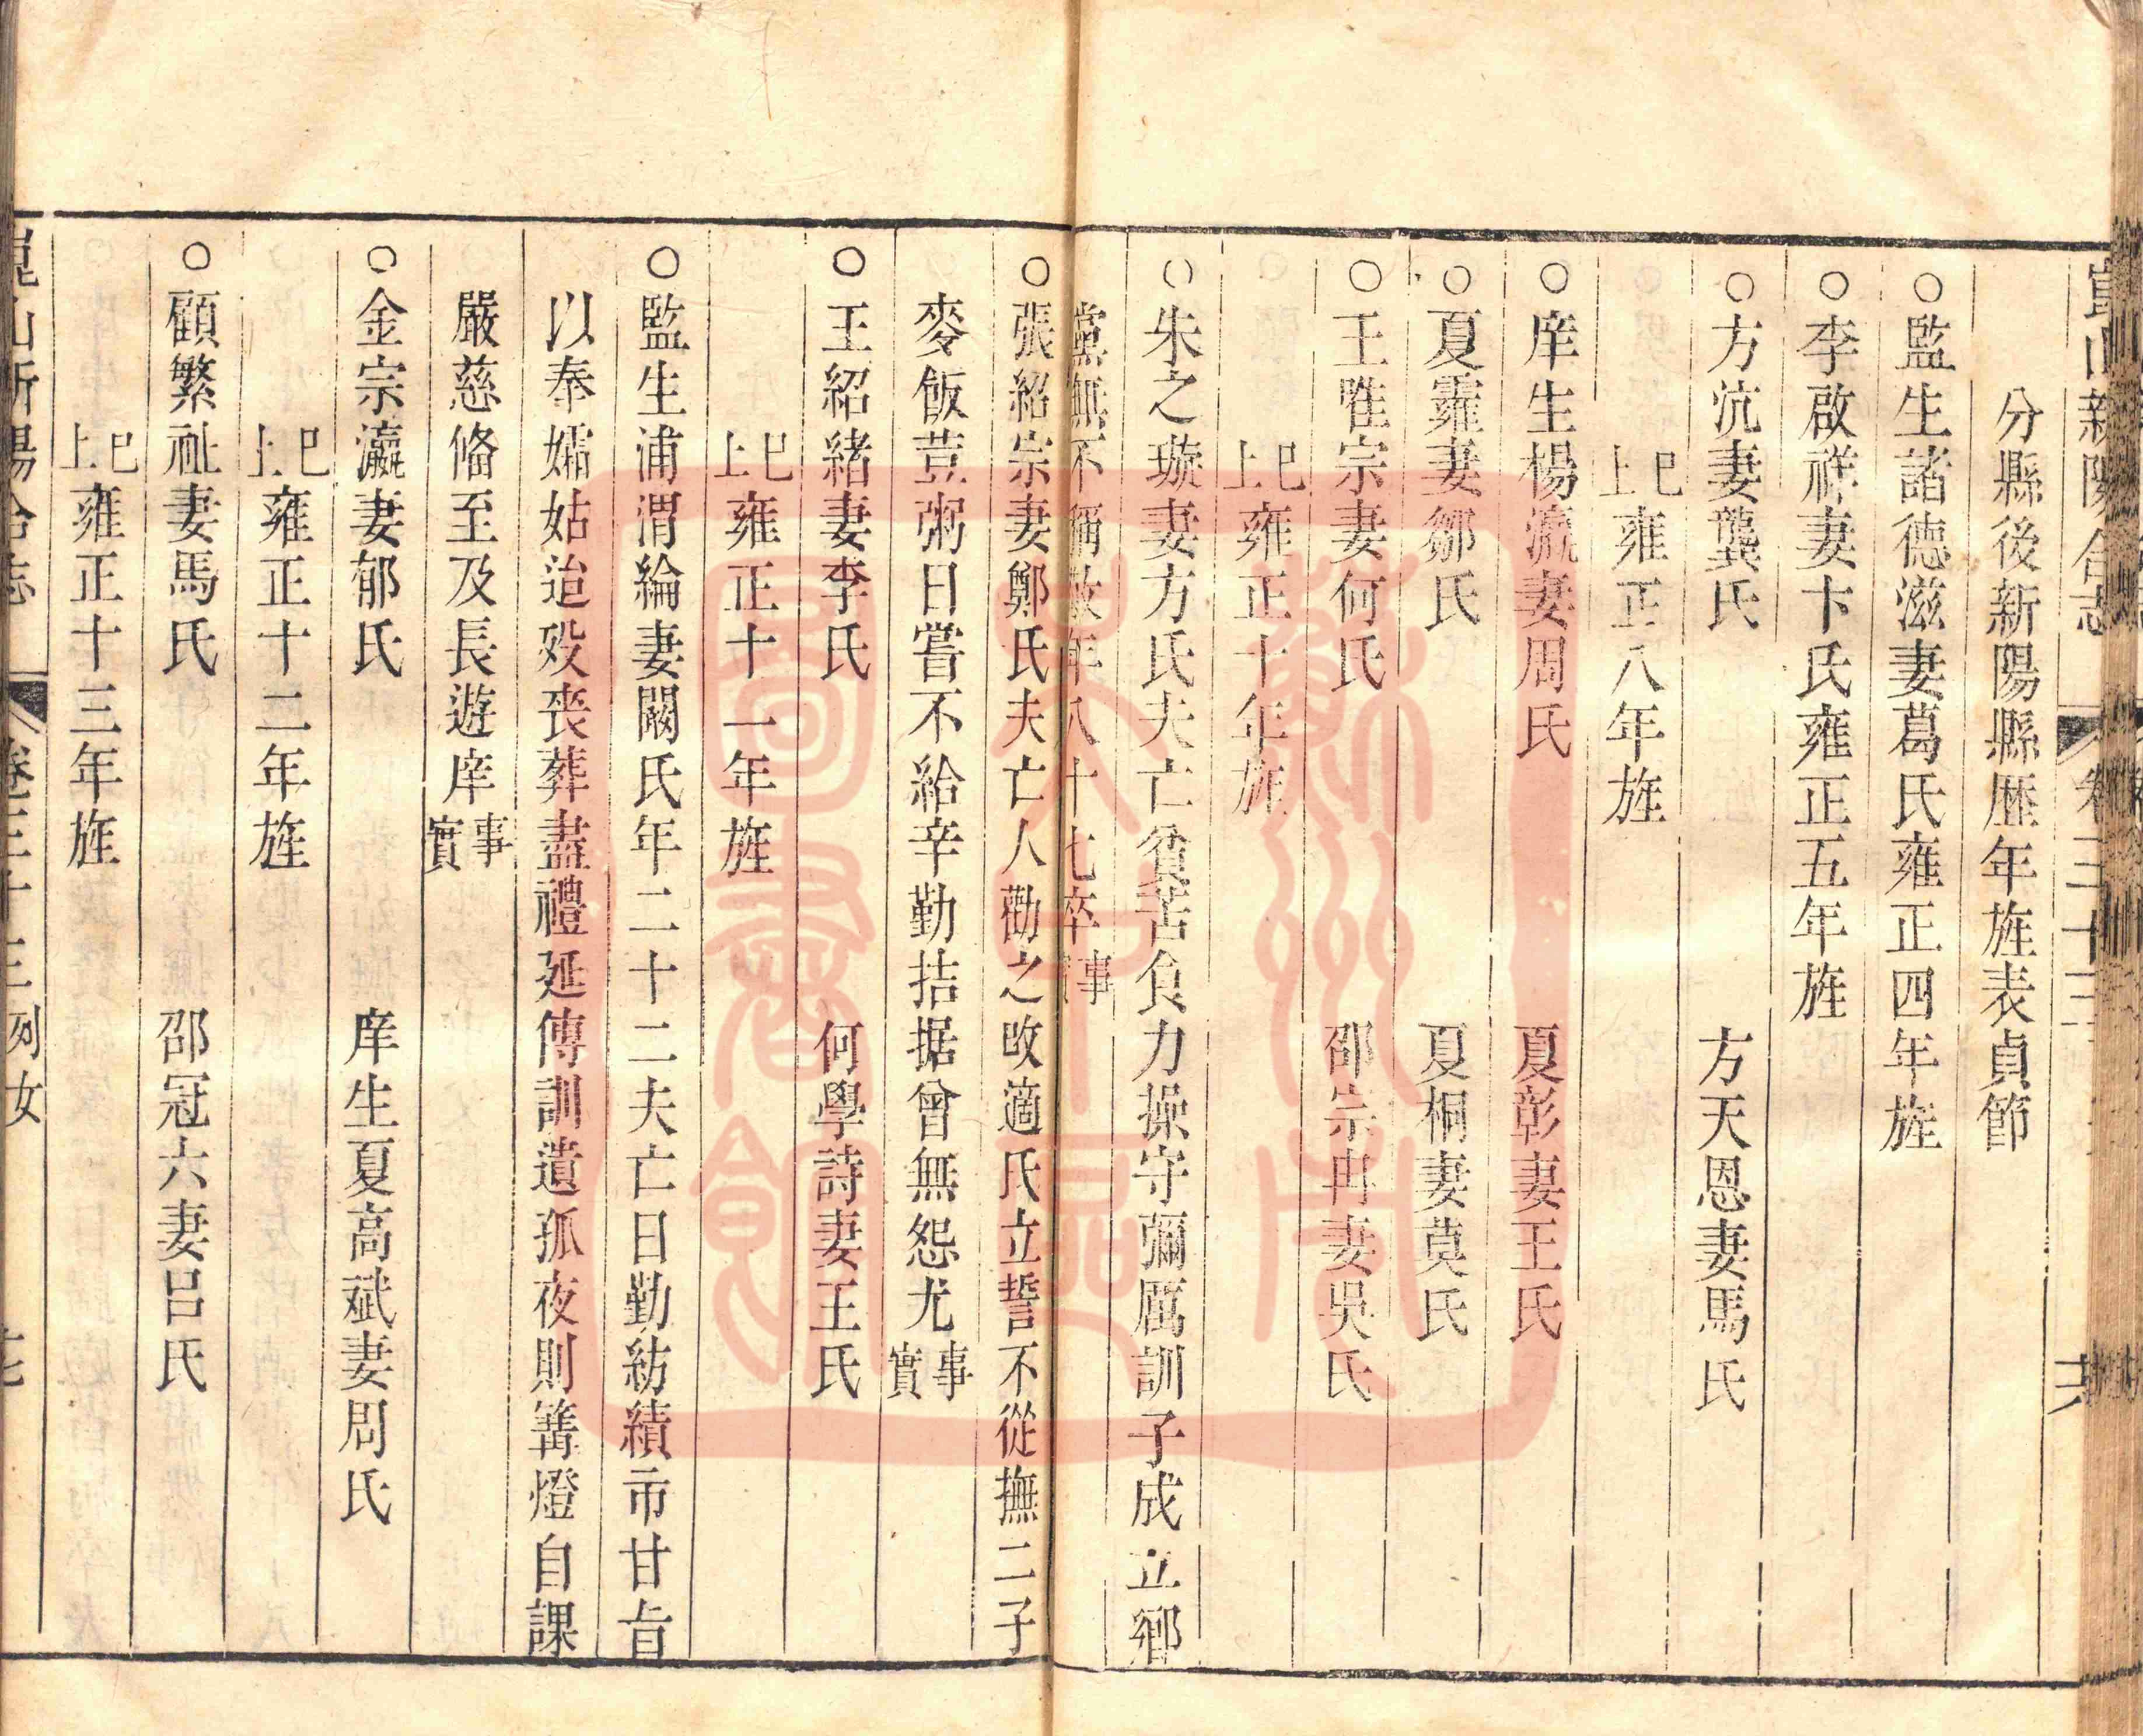 崑山新陽合志
卷三十三
六
分縣後新陽縣歷年旌表貞節
○監生諸德滋妻葛氏雍正四年旌
○李啟祥妻卞氏雍正五年旌
○方沆妻龔氏 方天恩妻馬氏
巳上雍正八年旌
○庠生楊瀛妻周氏 夏彰妻王氏
○夏霏妻鄒氏 夏桐妻莫氏
○王惟宗妻何氏 邵宗冉妻吳氏
巳上雍正十年旌
○朱之璇妻方氏夫亡貧苦食力操守彌厲訓子成立鄉
黨無不稱歎年八十七卒事實
○張紹宗妻鄭氏夫亡人勸之改適氏立誓不從撫二子
麥飯荳粥日嘗不給辛勤拮据曾無怨尤事實
○王紹緒妻李氏 何學詩妻王氏
巳上雍正十一年旌
○監生浦渭綸妻闞氏年二十二夫亡日勤紡績市甘旨
以奉孀姑迨歿喪葬盡禮延傅訓遺孤夜則篝燈自課
嚴慈俻至及長遊庠事實
○金宗瀛妻郁氏 庠生夏高斌妻周氏
巳上雍正十二年旌
○顧繁祉妻馬氏 邵冠六妻呂氏
巳上雍正十三年旌
崑山新陽合志 卷三十三列女
蘇州市
古吳區
圖書館